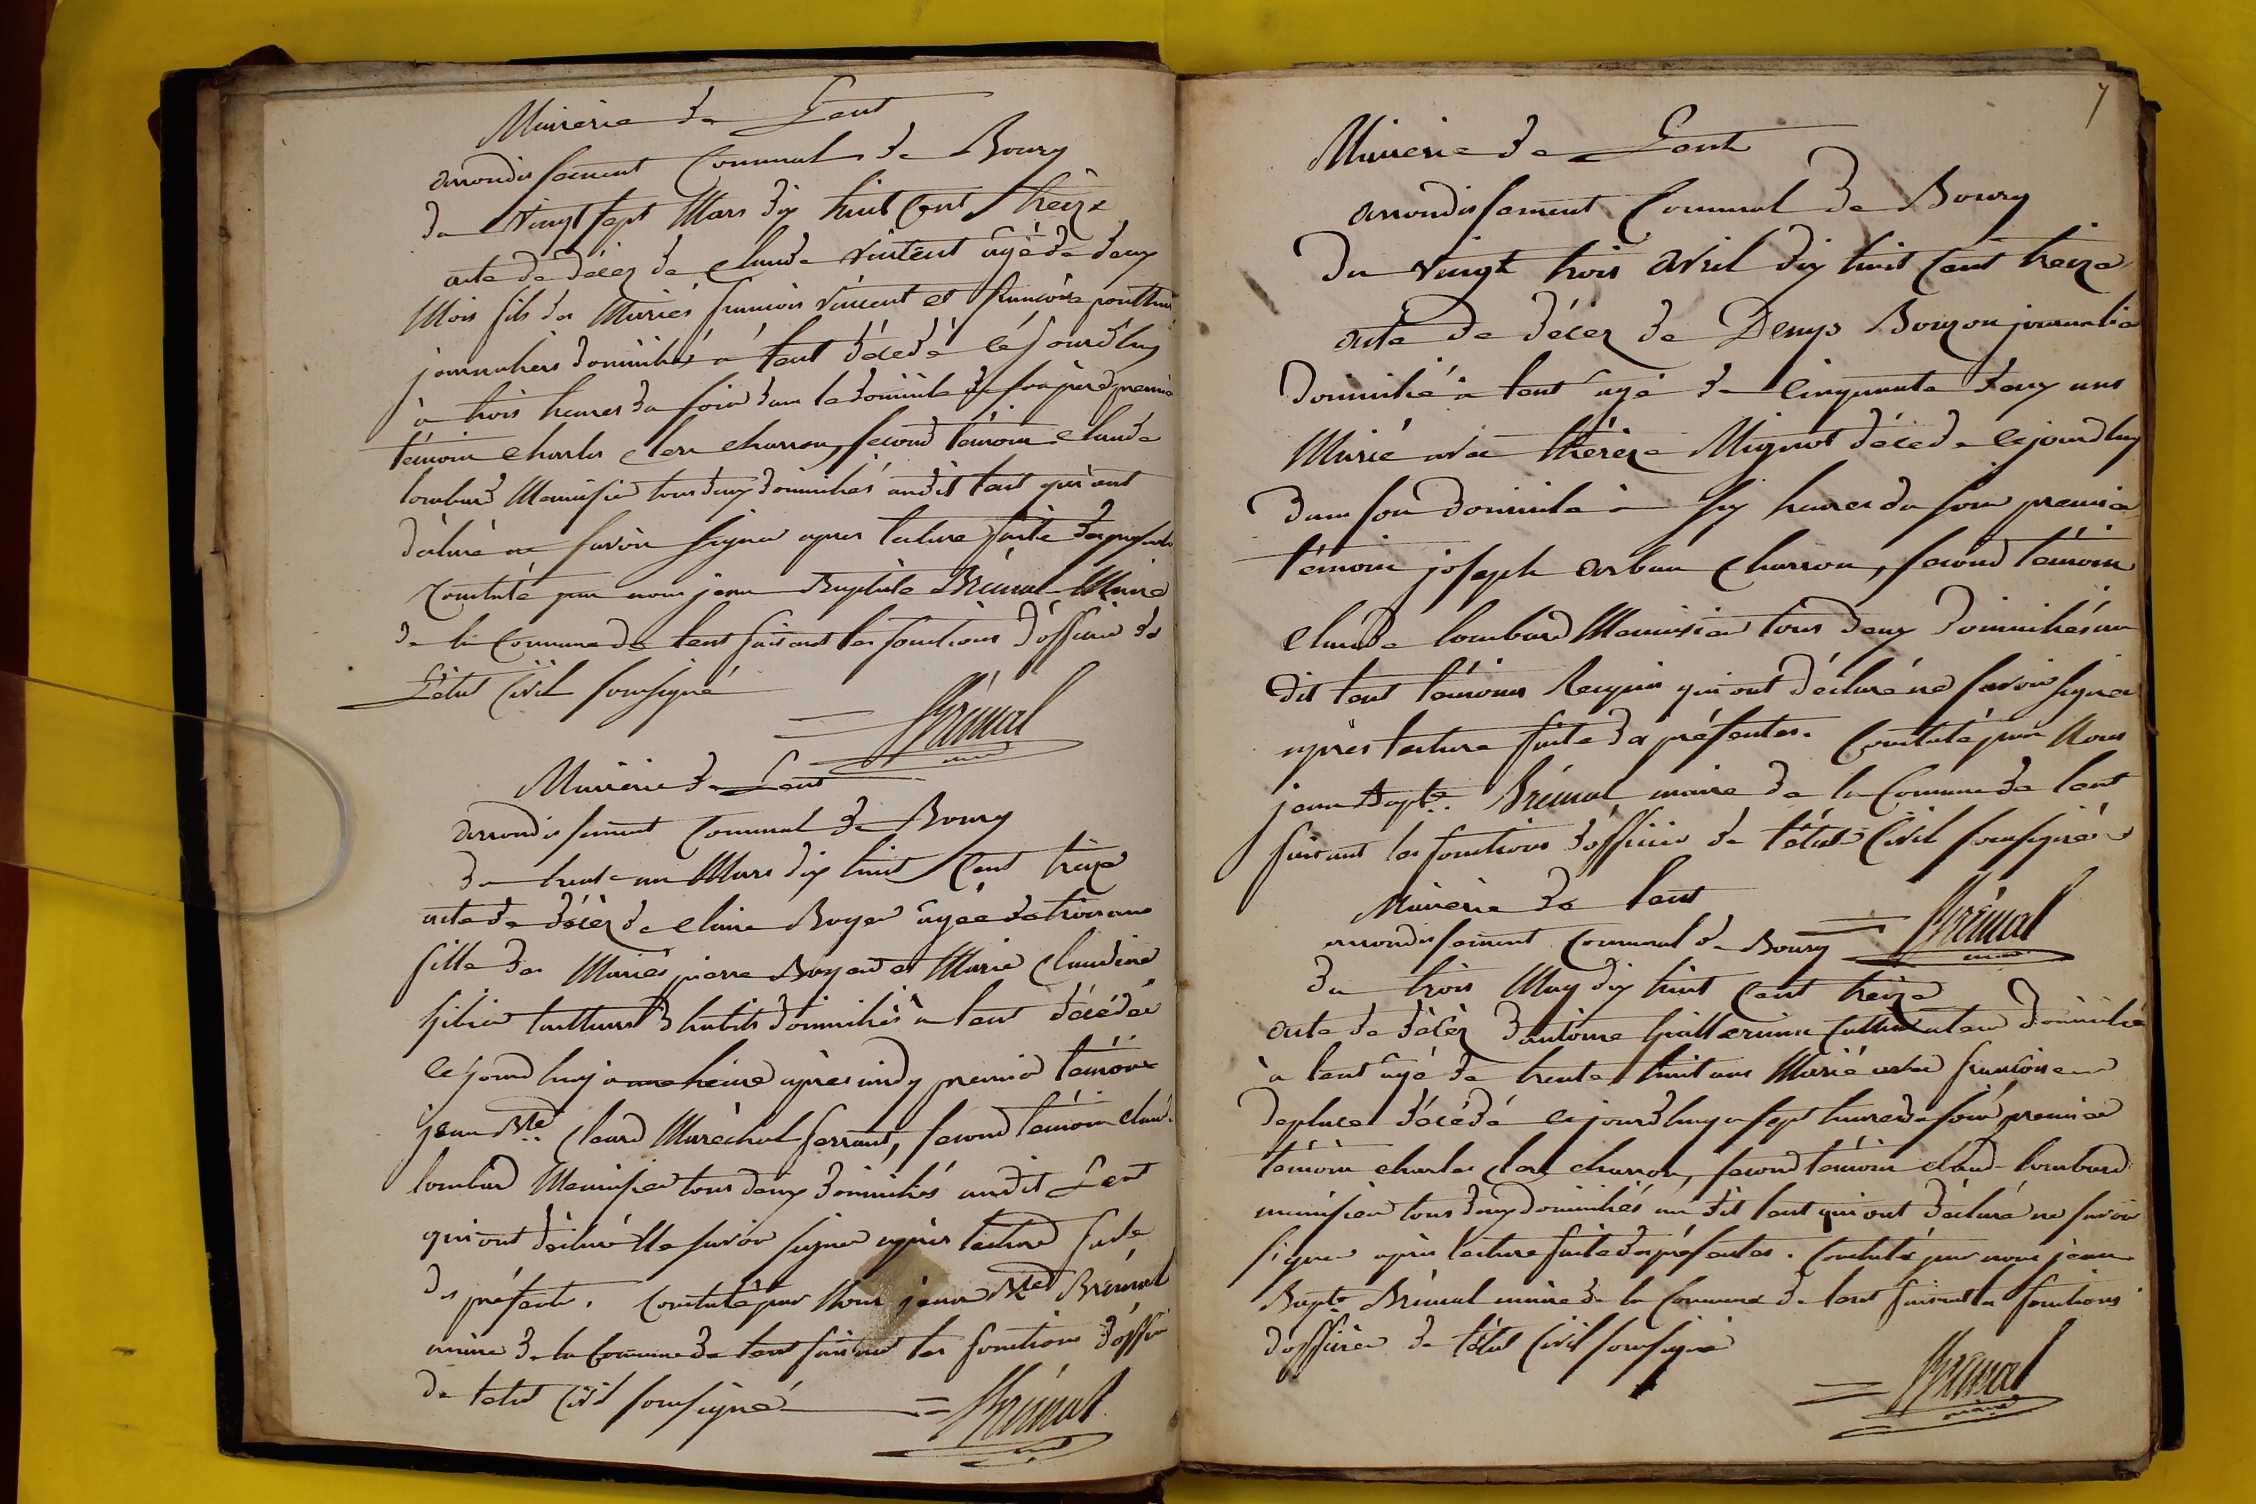 Mairerie de Lent
arrondissement Communal de Bourg
du vingt sept Mars dix huit Cent treize
acte de décez de Claude vincent agé de deux
Mois fils des Mariés francois vincent et francoise
journaliers domicilié à lent décédé cé jourdhuy
à trois heures du soir dans le domicile de son père premier
témoin charles clerc charron, second témoin claude
lombard Menuisier tous deux domiciliés audit lent qui ont
déclaré ne savoir signer apres lecture faite des présentes
Constaté par nous jean Baptiste Brémal Maire
de la Commune de lent faisant les fonctions d'officier de
L'état Civil soussigné
Brémal
Mairerie de Lent
arrondissement Communal de Bourg
du trente un Mars dix huit Cent treize
acte de décèz de claire Boyer agée de trois ans
fille des Mariés pierre Boyer et Marie Claudine
tailleurs d'habits domiciliés à lent décédée
ce jourd huy à une heure après midy premier témoin
jean Bte Claud Maréchal ferrant, second témoin claud
lombard Menuisier tous deux domiciliés audit Lent
qui ont déclaré Ne savoir signer après lecture faite
des présentes. Constaté par Nous jean Bte Brémal
maire de la Commune de lent faisant les fonctions d'officier
de létat Civil soussigné
Brémal
7
Mairerie de Lent
arrondissement Communal de Bourg
Du vingt trois avril dix huit Cent treize
acte de décez de Denys Bouzon journalier
Domicilié à lent agé de Cinquante deux ans
Marié avec thérèze Mignot décédé cejourdhuy
dans son domicile à six heures du soir premier
témoin joseph arban Charron, second témoin
Claude lombard Menuisier tous deux Domiciliés au
dit lent témoins Requis qui ont déclaré ne savoir signer
après lecture faite des présentes. Constaté par Nous
jean Bapte. Brémal maire de la Commune de lent
faisant les fonctions d'officier de l'état Civil soussigné
Brémal
Mairerie de lent
arrondissement Communal de Bourg
du trois May dix huit Cent treize
acte de décèz d'antoine Guillermin Cultivateur domicilié
à lent agé de trente huit ans Marié avec francoise
deplace décédé cejourdhuy a sept heures du soir premier
témoin charles clerc charron, second témoin claud lombard
menuisier tous deux domiciliés au dit lent qui ont déclaré ne savoir
signer après lecture faite des présentes. Constaté par nous jean
Bapte Brémal maire de la Commune de lent faisant les fonctions
d'officier de l'état Civil soussigné
Brémal
maire